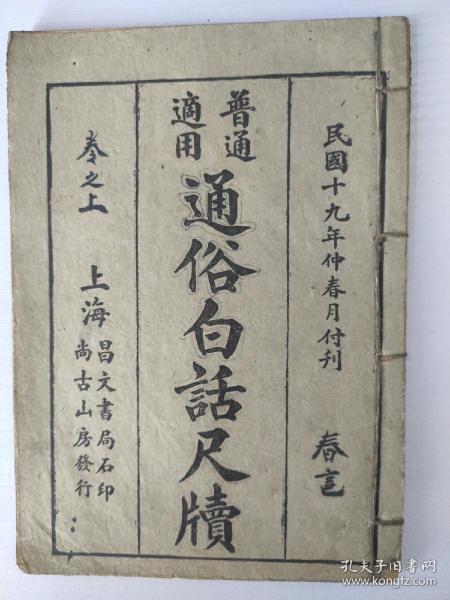 民國十九年仲春月付刊
春言
普通
適用
通俗白話尺牘
卷之上
上海
昌文書局石印
尚古山房發行
孔夫子旧书网
www.kongfz.com